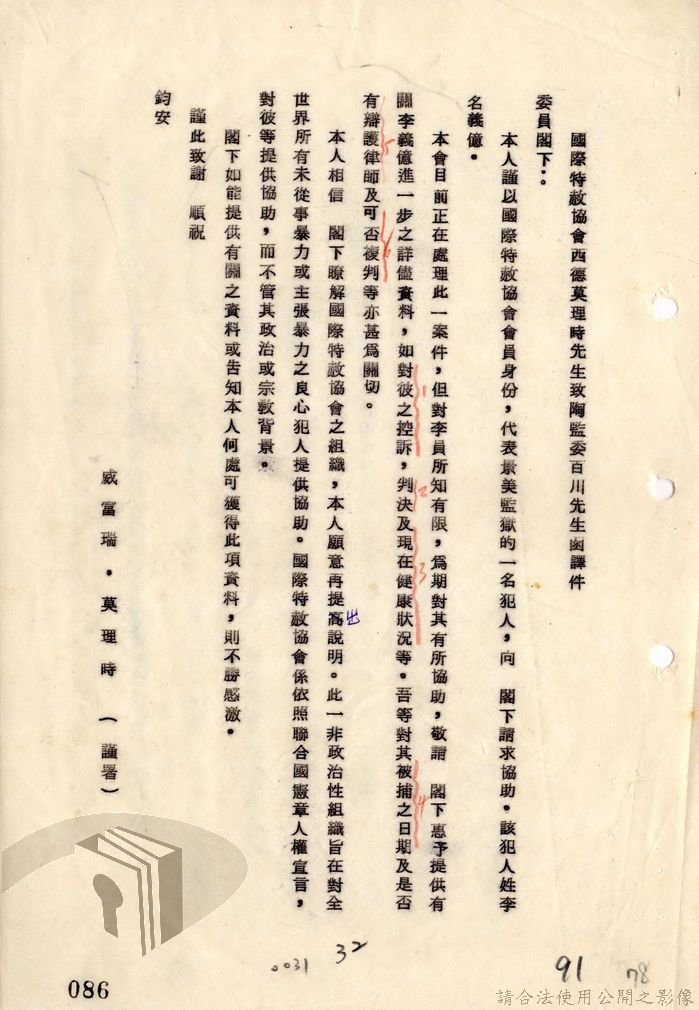 國際特赦協會西德莫理時先生致陶監委百川先生函譯件
委員閣下：
本人謹以國際特赦協會會員身份，代表景美監獄的一名犯人，向　閣下請求協助。該犯人姓李
名義億。
本會目前正在處理此一案件，但對李員所知有限，為期對其有所協助，敬請　閣下惠予提供有
關李義億進一步之詳儘資料，如對彼之控訴，判決及現在健康狀況等。吾等對其被捕之日期及是否
有辯護律師及可否複判等亦甚為關切。
本人相信　閣下瞭解國際特赦協會之組織，本人願意再提高說明。此一非政治性組織旨在對全
出
世界所有未從事暴力或主張暴力之良心犯人提供協助。國際特赦協會係依照聯合國憲章人權宣言，
對彼等提供協助，而不管其政治或宗教背景。
閣下如能提供有關之資料或告知本人何處可獲得此項資料，則不勝感激。
謹此致謝　順祝
鈞安
威富瑞．莫理時（謹署）
1
2
3
4
5
6
0031
32
91
78
086
請合法使用公開之影像